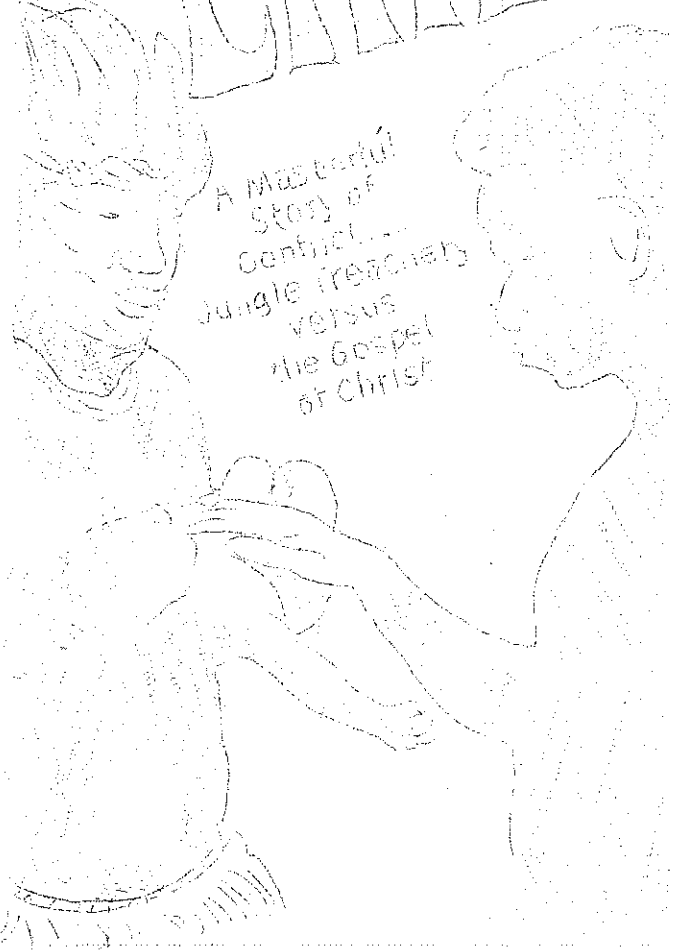 A Masterful
Story of
Conflict...
Jungle Treachery
versus
the Gospel
of Christ